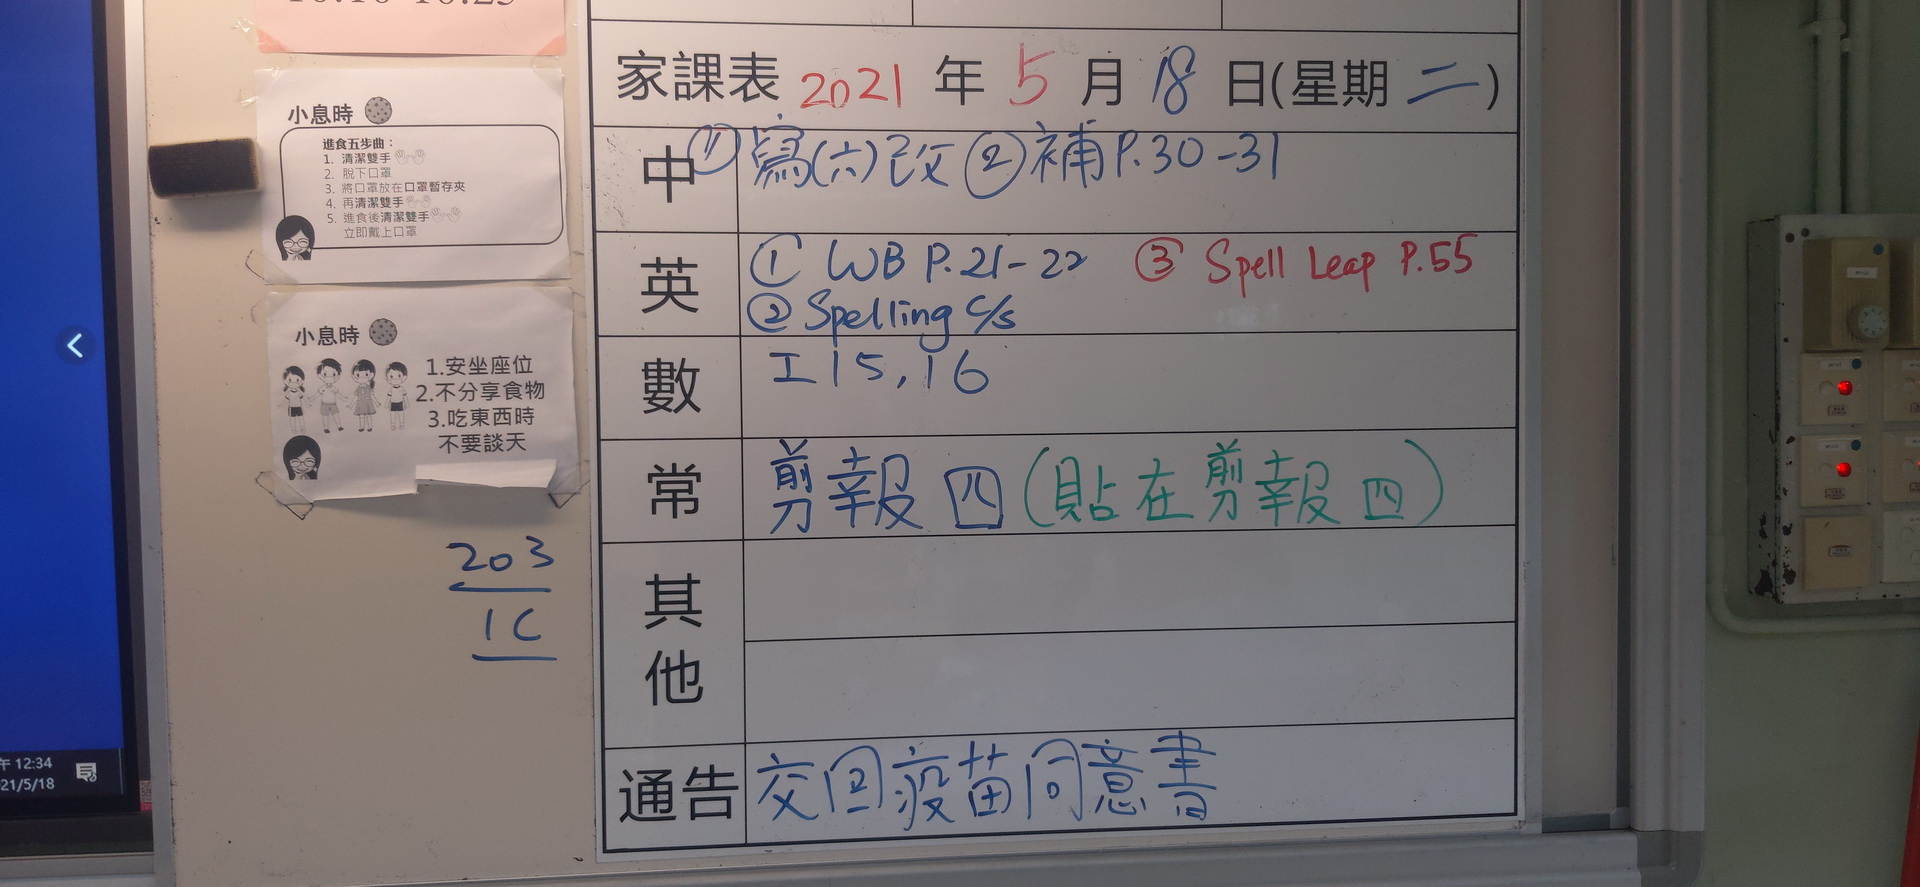 小息時
進食五步曲：
1. 清潔雙手
2. 脫下口罩
3. 將口罩放在口罩暫存夾
4. 再清潔雙手
5. 進食後清潔雙手
立即戴上口罩
小息時
1.安坐座位
2.不分享食物
3.吃東西時
不要談天
203
1C
12:34
21/5/18
家課表 2021 年 5 月 18 日(星期 二)
中 ① 寫(六)改 ② 補 P.30-31
英 ① WB P.21-22 ③ Spell Leap P.55
② Spelling c/s
數 工 15, 16
常 剪報 四 (貼在剪報 四)
其他
通告 交回疫苗同意書